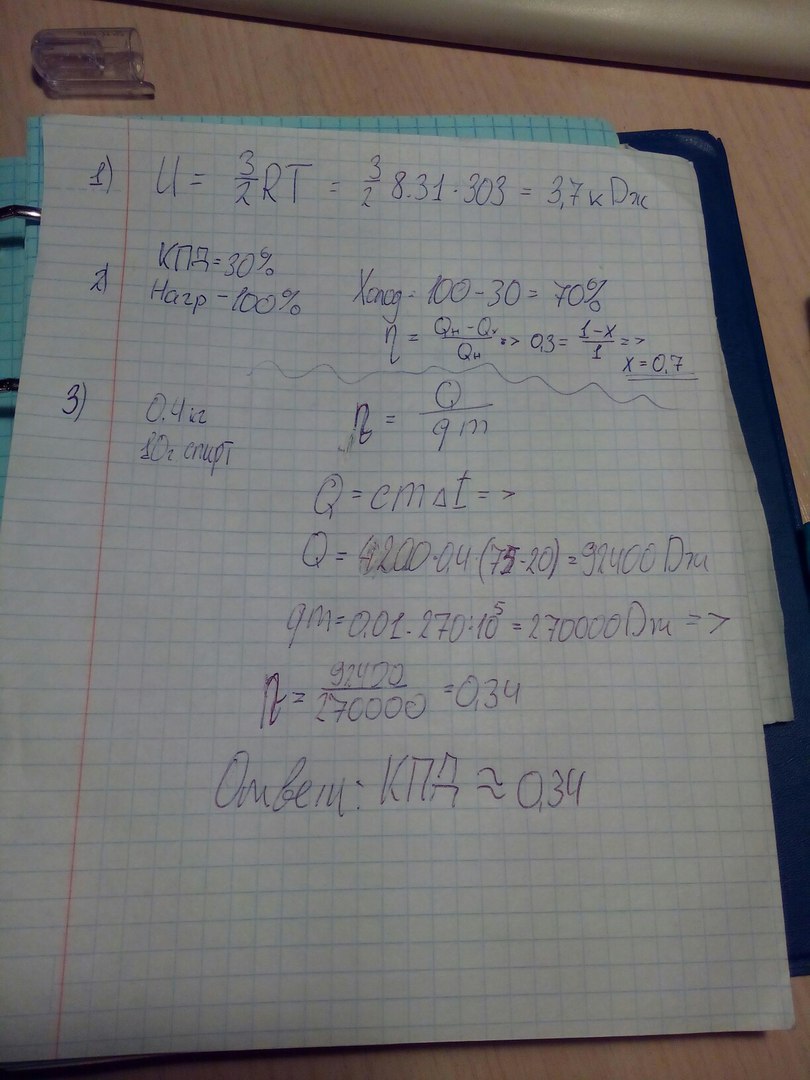 1) U = 3/2 RT = 3/2 8.31 · 303 = 3,7 кДж
2) КПД = 30%
Нагр - 100%
Холод - 100 - 30 = 70%
η = (Qн - Qх)/Qн => 0,3 = (1-x)/1 =>
x = 0,7
3) 0.4 кг
10г спирт
η = Q/qm
Q = cmΔt = >
Q = 4200·0,4·(75-20) = 92400 Дж
qm = 0,01 · 270·10⁵ = 270000 Дж = >
η = 92400/270000 = 0,34
Ответ: КПД ≈ 0,34